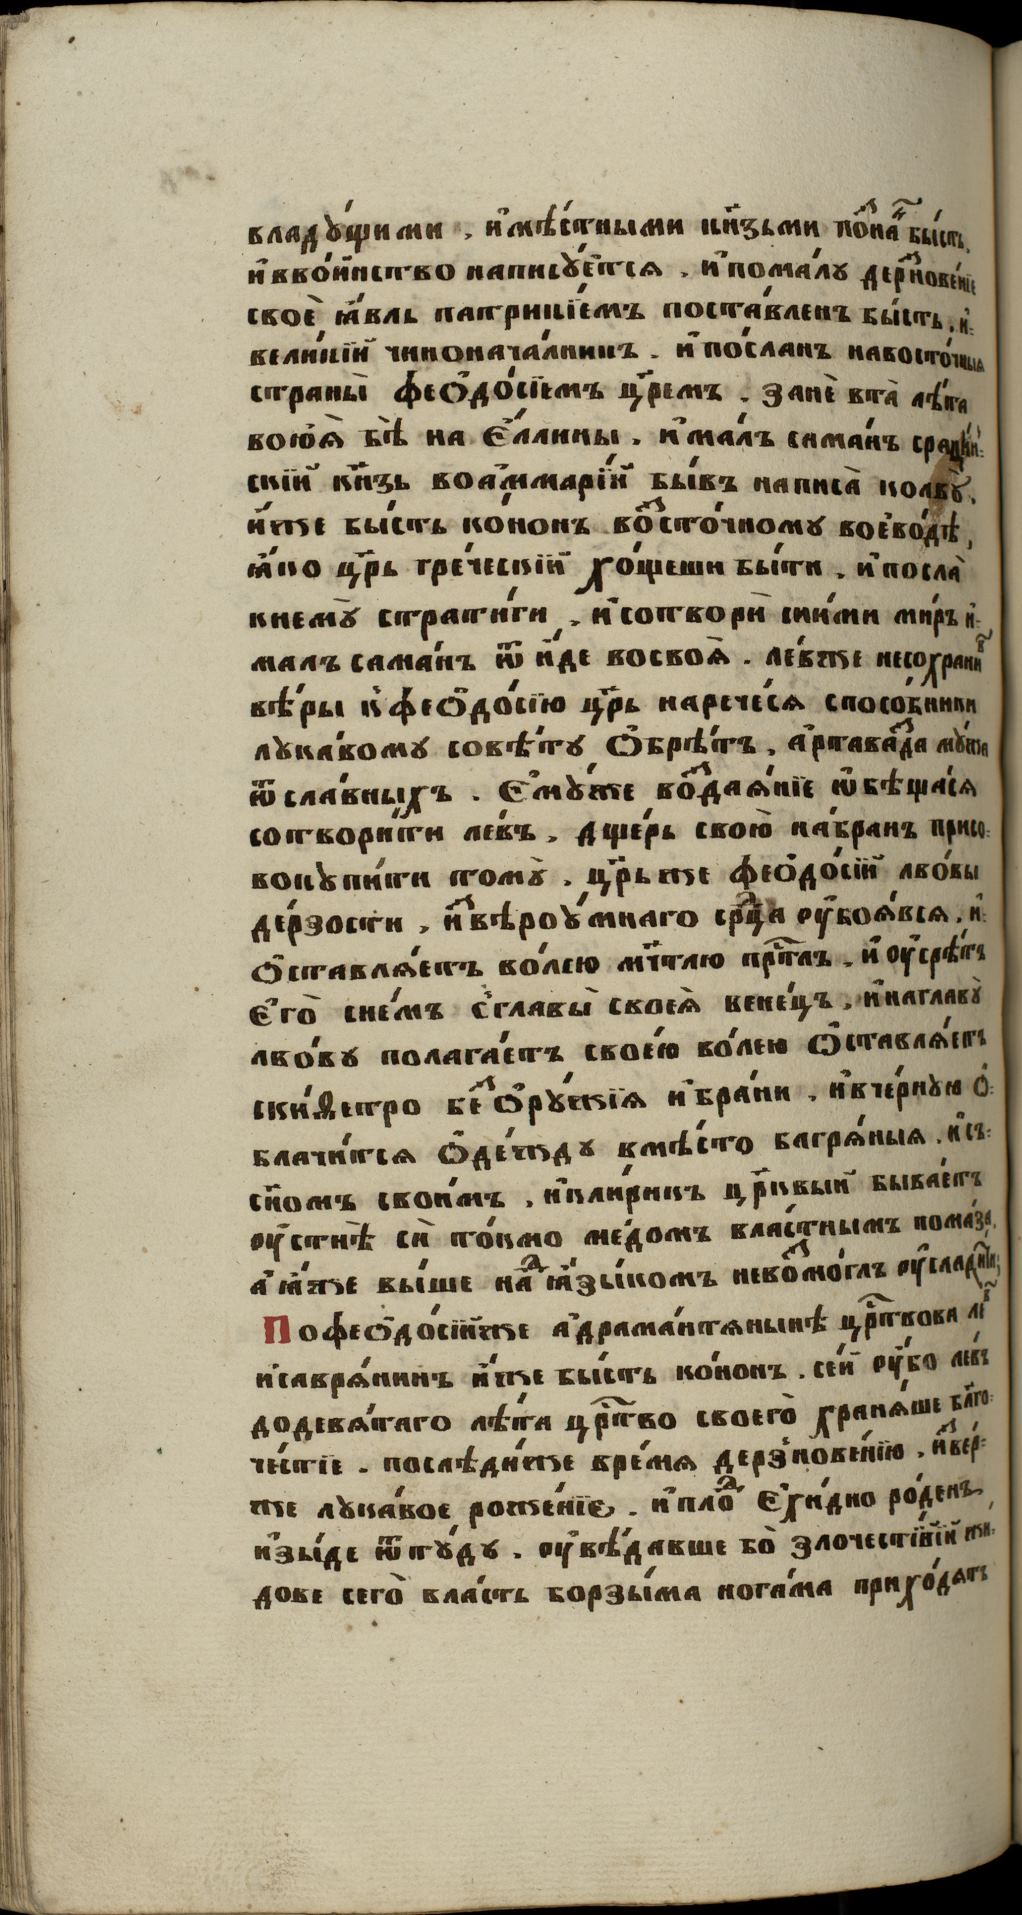 владꙋ́щими , и҆мѣ́стными кн҃ѕьми по́ⷥнаⷩ҇ бы́сть,
и҆вво́инство написꙋ́ется . и҆помалꙋ деⷬ҇ꙁнове́нїе
своѐ ꙗ҆́вль патрикїемъ поста́вленъ бы́сть . и҆
вели́кїй чинонача́лникъ . и҆посланъ навосто́чныѧ
страны̀ феѡдо́сїемъ цр҃емъ . занѐ вта̀ лѣ́та
воюѧ бѣ̀ на є҆́ллины . и҆малъ саманъ
скїй кн҃ѕь воа҆ммарїй бы́въ написа̀
и҆́же бы́сть ко́нонъ воⷭ҇то́чномꙋ воево́дѣ ,
ꙗ҆́ко цр҃ь гре́ческїй хо́щеши бы́ти . и҆посла̀
кнемꙋ̀ страти́ги , и҆сотворѝ сни́ми ми́ръ и҆
малъ сама́нъ ѿ и҆́де восвоѧ̀ . ле́вже несохраниⷡ
вѣ́ры кфеѡдо́сїю цр҃ь нарече́сѧ спосо́бники
лꙋка́вомꙋ совѣ́тꙋ ѡ҆брѣ́тъ , а҆ртаваⷥда мꙋ́жа
ѿ сла́вныхъ . є҆мꙋ́же воⷥдаѧ́нїе ѡ҆бѣща́сѧ
сотвори́ти ле́въ , дще́рь свою̀ на́бранъ присо
вокꙋпи́ти томꙋ̀ . цр҃ьже феѡдо́сїй льво́вы
де́рзости , и҆звѣроꙋ́мнаго срⷣца ᲂу҆боѧ́всѧ . и҆
ѡ҆ставлѧ́етъ во́лею мⷭ҇тлю прⷭ҇тлъ . и҆ᲂу҆срѣ́тъ
є҆го̀ сне́мъ сглавы̀ своеѧ̀ вене́цъ , и҆наглавꙋ̀
льво́вꙋ полага́етъ свое́ю во́лею ѡ҆ставлѧ́етъ
ски́ѳетро беⷥ ѡ҆рꙋ́жїѧ и҆бра́ни , и҆вче́рнꙋю ѻ҆
блачи́тсѧ ѻ҆де́ждꙋ вмѣ́сто багрѧ́ныѧ . и҆съ
сн҃омъ свои́мъ , и҆кли́рикъ цр҃квый быва́етъ
ᲂу҆стнѣ̀ сѝ то́кмо ме́домъ вла́стнымъ пома́за,
а҆ ꙗ҆́же вы́ше наⷣ ꙗ҆зы́комъ невоⷥмо́глъ
Пофеѡдо́сїйже а҆драма́нтѧнынѣ црⷭ҇твова леⷡ
и҆саврѧ́нинъ и҆́же бы́сть ко́нонъ . се́й ᲂу҆́бо ле́въ
додевѧ́таго лѣ́та црⷭ҇тво своего̀ хранѧ́ше бл҃го
че́стїе . послѣдни́же вре́мѧ дерзнове́нїю . и҆ⷥве́р
же лꙋка́вое роже́нїе . и҆плоⷣ є҆хи́дно ро́денъ ,
и҆зы́де ѿтꙋ́дꙋ . ᲂу҆вѣ́давше бо̀ злочести́вїй жи
дове сего̀ вла́сть борзы́ма нога́ма прихо́дѧтъ